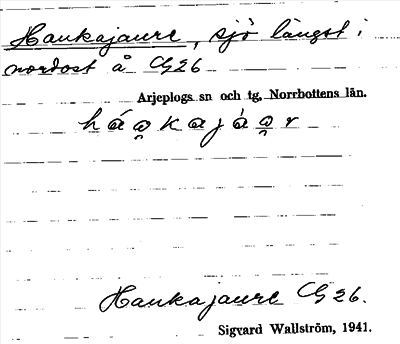 Haukajaure, sjö längst i
nordost å G26
Arjeplogs sn och tg, Norrbottens län.
háo̯kajáo̯r
Haukajaure G 26.
Sigvard Wallström, 1941.